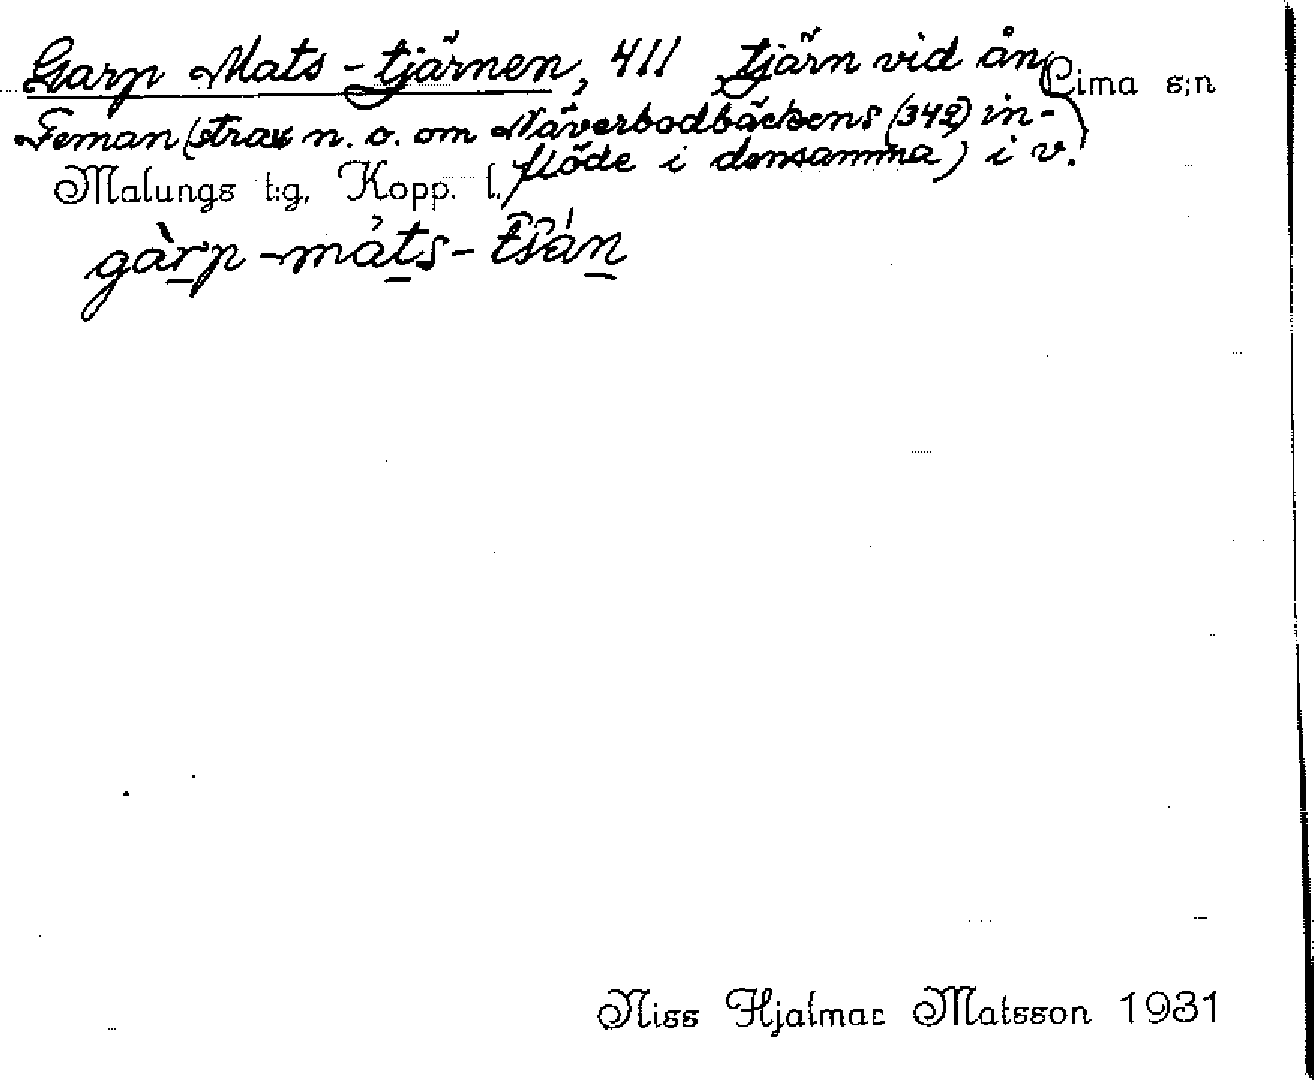 Garp Mats-tjärnen, 411 tjärn vid ån Lima s:n
Feman (strax n. o. om Näverbodbäckens (342) in-
flöde i densamma) i v.
Malungs t:g, Kopp. l.
gàrp-máts-
Niss Hjalmar Matsson 1931